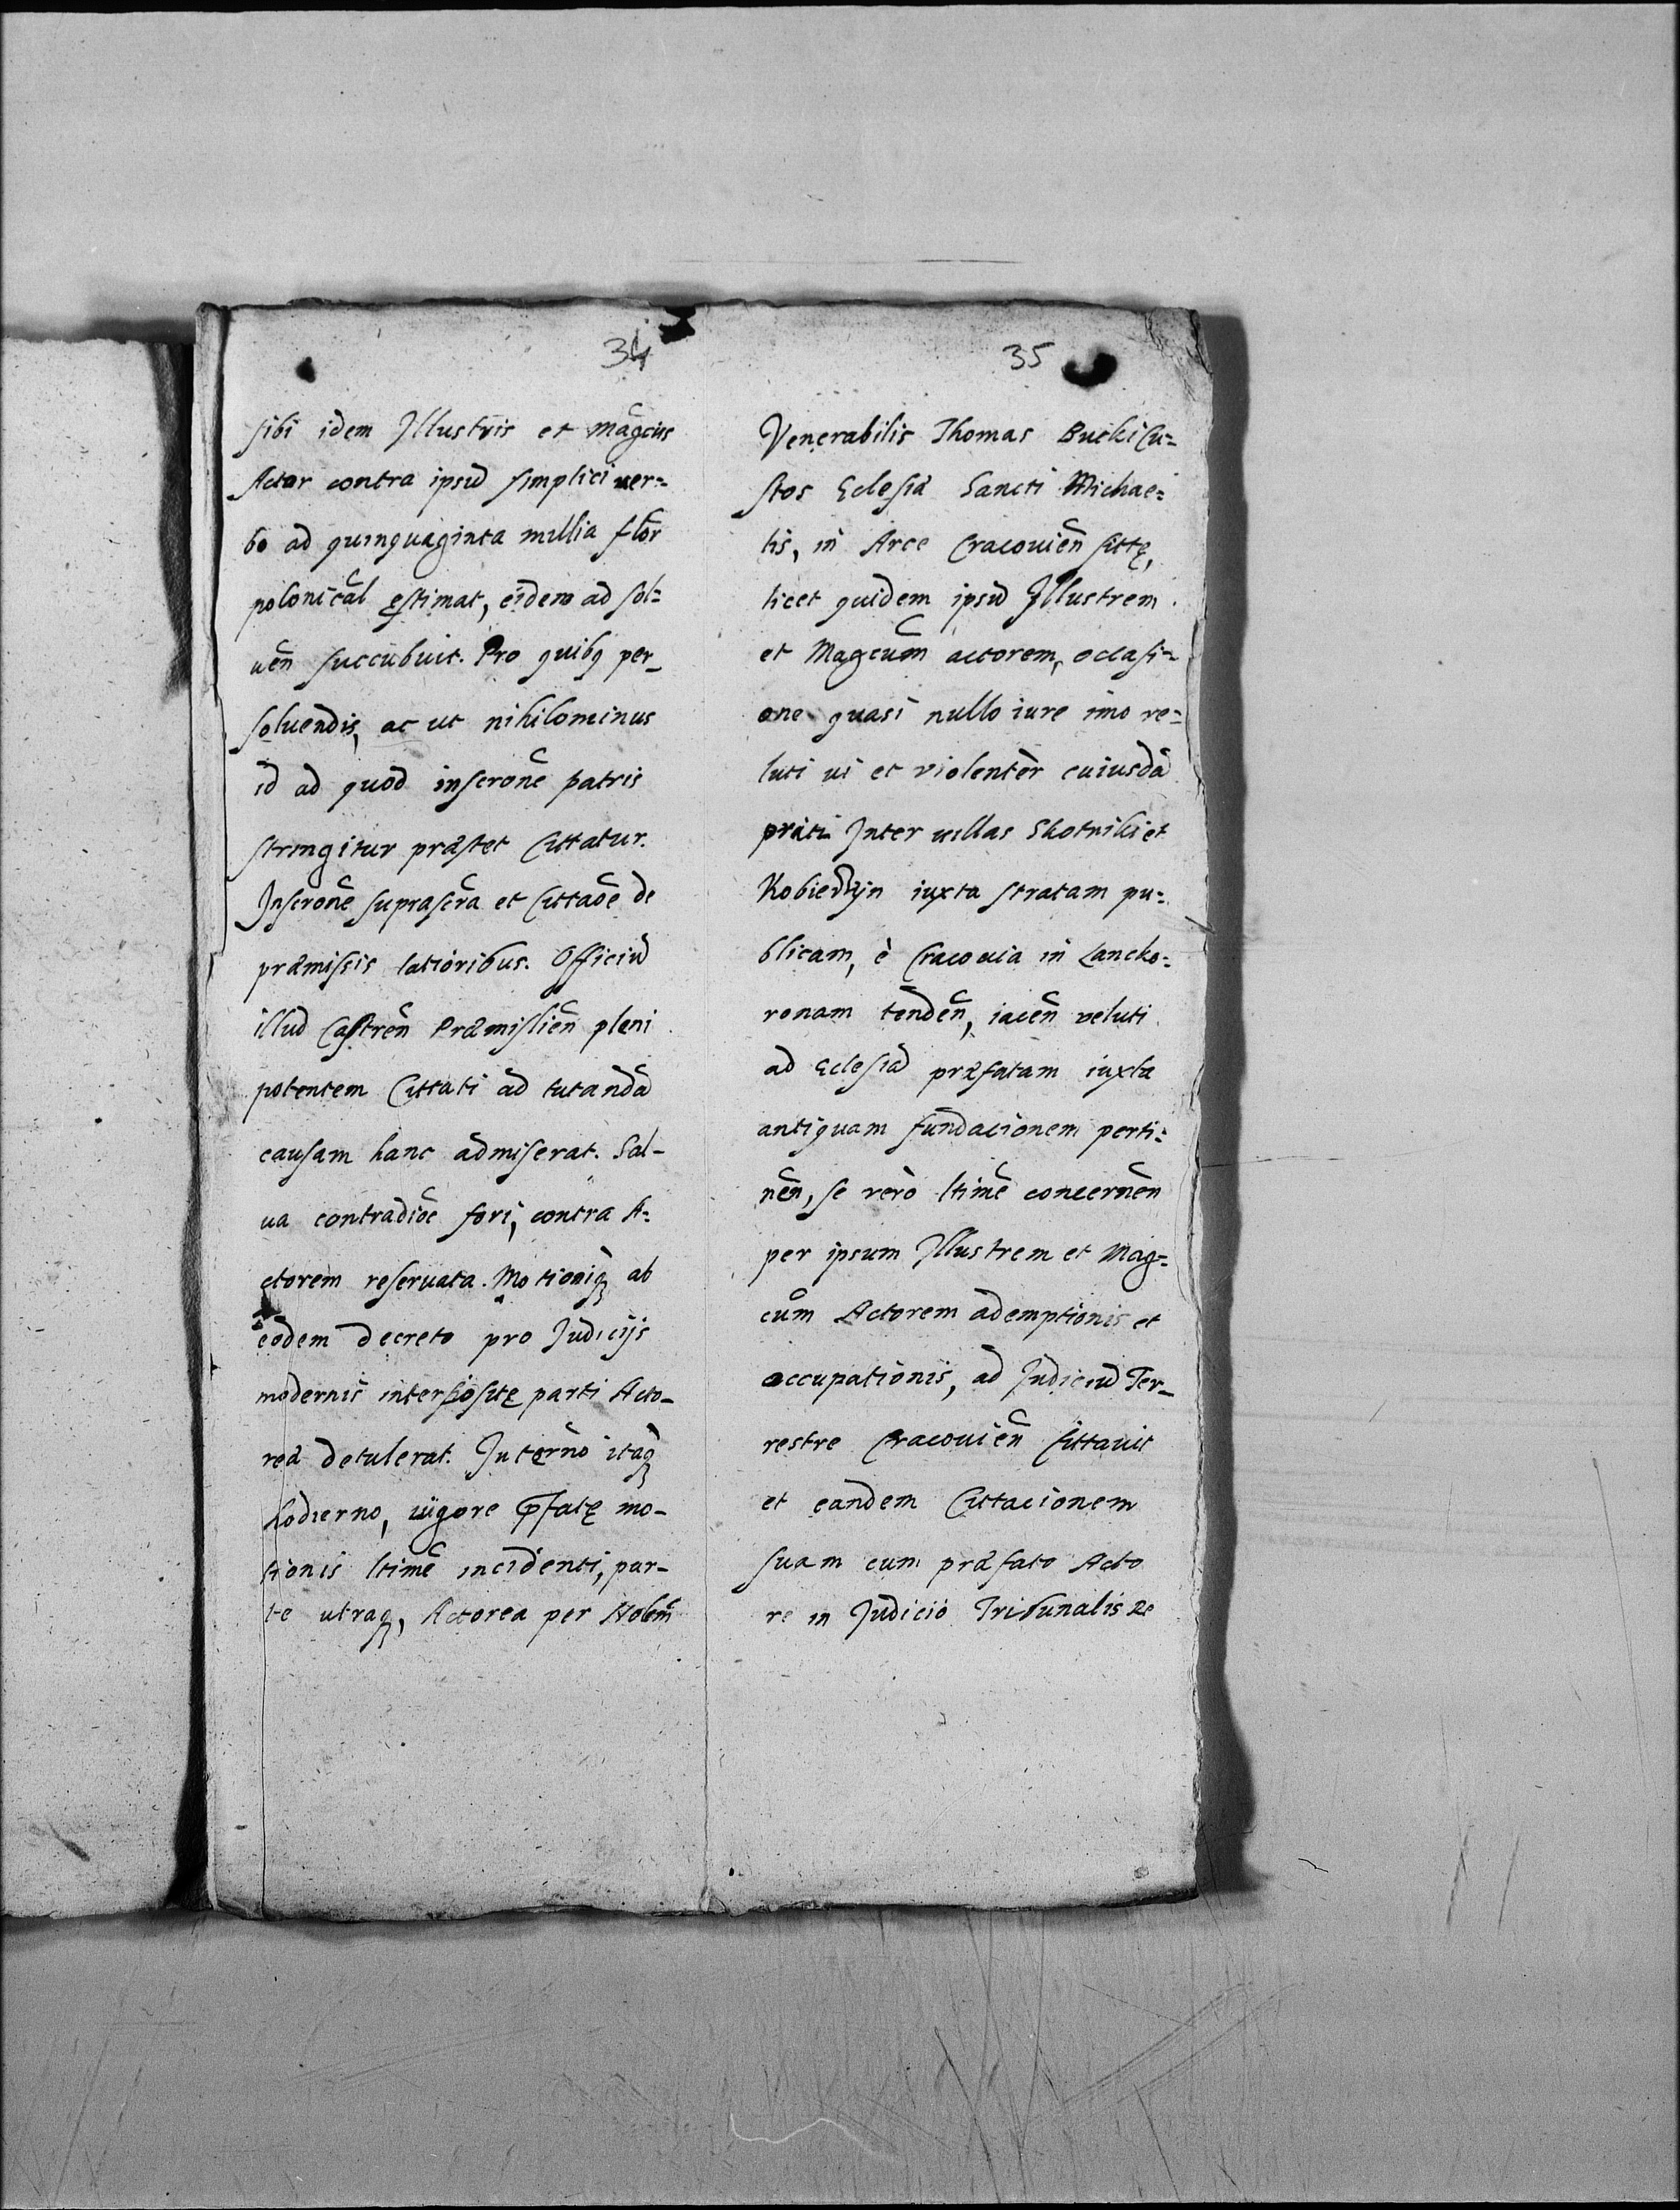 34
sibi idem Illustris et Magcus
Actor contra ipsū simplici ver=
bo ad quinquaginta millia flor
polonical ęstimat, eidem ad sol=
uen̄ succubuit. Pro quibq per_
soluendis, ac ut nihilominus
id ad quod inscrone patris
stringitur præstet Cittatur.
Inscrone suprascra et Cittaōe de
præmissis latioribus. Officiū
illud Castren̄ Præmislien̄ pleni
potentem Cittati ad tutandā
causam hanc admiserat. Sal-
ua contradiōe fori, contra A=
ctorem reseruata. Motioniq ab
eodem decreto pro Judicijs
modernis interpositę parti Acto_
reā detulerat. In termo itaq
hodierno, uigore pfatę mo_
tionis ltime incidenti, par_
te utraq, Actorea per Noblm
35
Venerabilis Thomas Bucki Cu=
stos Eclesiæ Sancti Michae=
lis, in Arce Cracouien̄ sittę,
licet quidem ipsū Illustrem
et Magcum actorem, occasi=
one quasi nullo iure imo ve=
luti ui et violenter cuiusdā
prati Inter uillas Skotniki et
Kobierzyn iuxta stratam pu=
blicam, è Cracouia in Lancko=
ronam tenden̄, iacen̄ veluti
ad Eclesiā præfatam iuxta
antiquam fundacionem perti=
nen̄, se verò ltime concernen̄
per ipsum Illustrem et Mag=
cum Actorem ademptionis et
occupationis, ad Judiciū Ter_
restre Cracouien̄ Cittauit
et eandem Cittacionem
suam cum præfato Acto
re in Judicio Tribunalis Re